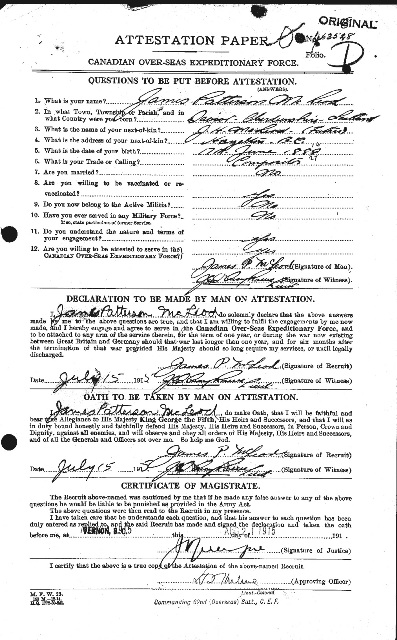 ORIGINAL
ATTESTATION PAPER
No.
Folio.
CANADIAN OVER-SEAS EXPEDITIONARY FORCE.
QUESTIONS TO BE PUT BEFORE ATTESTATION.
(ANSWERS)
1. What is your name? James Patterson McLeod
2. In what Town, Township or Parish, and in
what Country were you born? Scotland
3. What is the name of your next-of-kin?
4. What is the address of your next-of-kin? B.C.
5. What is the date of your birth? June
6. What is your Trade or Calling?
7. Are you married? No
8. Are you willing to be vaccinated or re-
vaccinated? Yes
9. Do you now belong to the Active Militia? No
10. Have you ever served in any Military Force? No
If so, state particulars of former Service.
11. Do you understand the nature and terms of
your engagement? Yes
12. Are you willing to be attested to serve in the
CANADIAN OVER-SEAS EXPEDITIONARY FORCE? Yes
James P McLeod (Signature of Man).
(Signature of Witness)
DECLARATION TO BE MADE BY MAN ON ATTESTATION.
I, James Patterson McLeod, do solemnly declare that the above answers
made by me to the above questions are true, and that I am willing to fulfil the engagements by me
now made, and I hereby engage and agree to serve in the Canadian Over-Seas Expeditionary Force, and
to be attached to any arm of the service therein, for the term of one year, or during the war now existing
between Great Britain and Germany should that war last longer than one year, and for six months after
the termination of that war provided His Majesty should so long require my services, or until legally
discharged.
James P McLeod (Signature of Recruit)
Date July 15 1915 (Signature of Witness)
OATH TO BE TAKEN BY MAN ON ATTESTATION.
I, James Patterson McLeod, do make Oath, that I will be faithful and
bear true Allegiance to His Majesty King George the Fifth, His Heirs and Successors, and that I will as
in duty bound honestly and faithfully defend His Majesty, His Heirs and Successors, in Person, Crown and
Dignity, against all enemies, and will observe and obey all orders of His Majesty, His Heirs and Successors,
and of all the Generals and Officers set over me. So help me God.
James P McLeod (Signature of Recruit)
Date July 15 1915 (Signature of Witness)
CERTIFICATE OF MAGISTRATE.
The Recruit above-named was cautioned by me that if he made any false answer to any of the above
questions he would be liable to be punished as provided in the Army Act.
The above questions were then read to the Recruit in my presence.
I have taken care that he understands each question, and that his answer to each question has been
duly entered as replied to, and the said Recruit has made and signed the declaration and taken the oath
before me, at VERNON, B.C. this day of 1915 191 .
(Signature of Justice)
I certify that the above is a true copy of the Attestation of the above-named Recruit
(Approving Officer)
Lieut-Colonel
M. F. W. 23.
Commanding 62nd (Overseas) Batt., C. E. F.